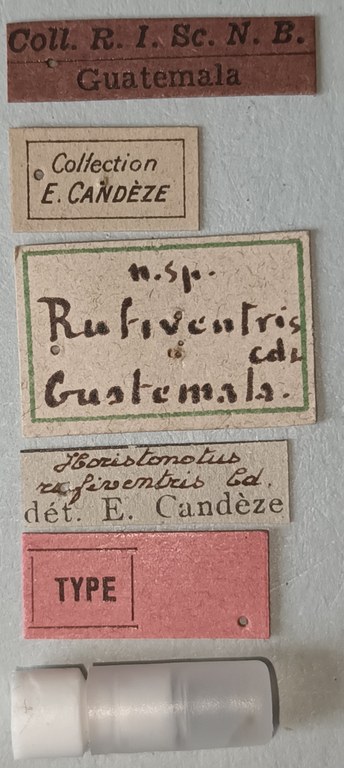 Coll. R. I. Sc. N. B.
Guatemala
Collection
E. CANDÈZE
n.sp.
Rufiventris
cdz
Guatemala.
Horistonotus
rufiventris Cd.
dét. E. Candèze
TYPE